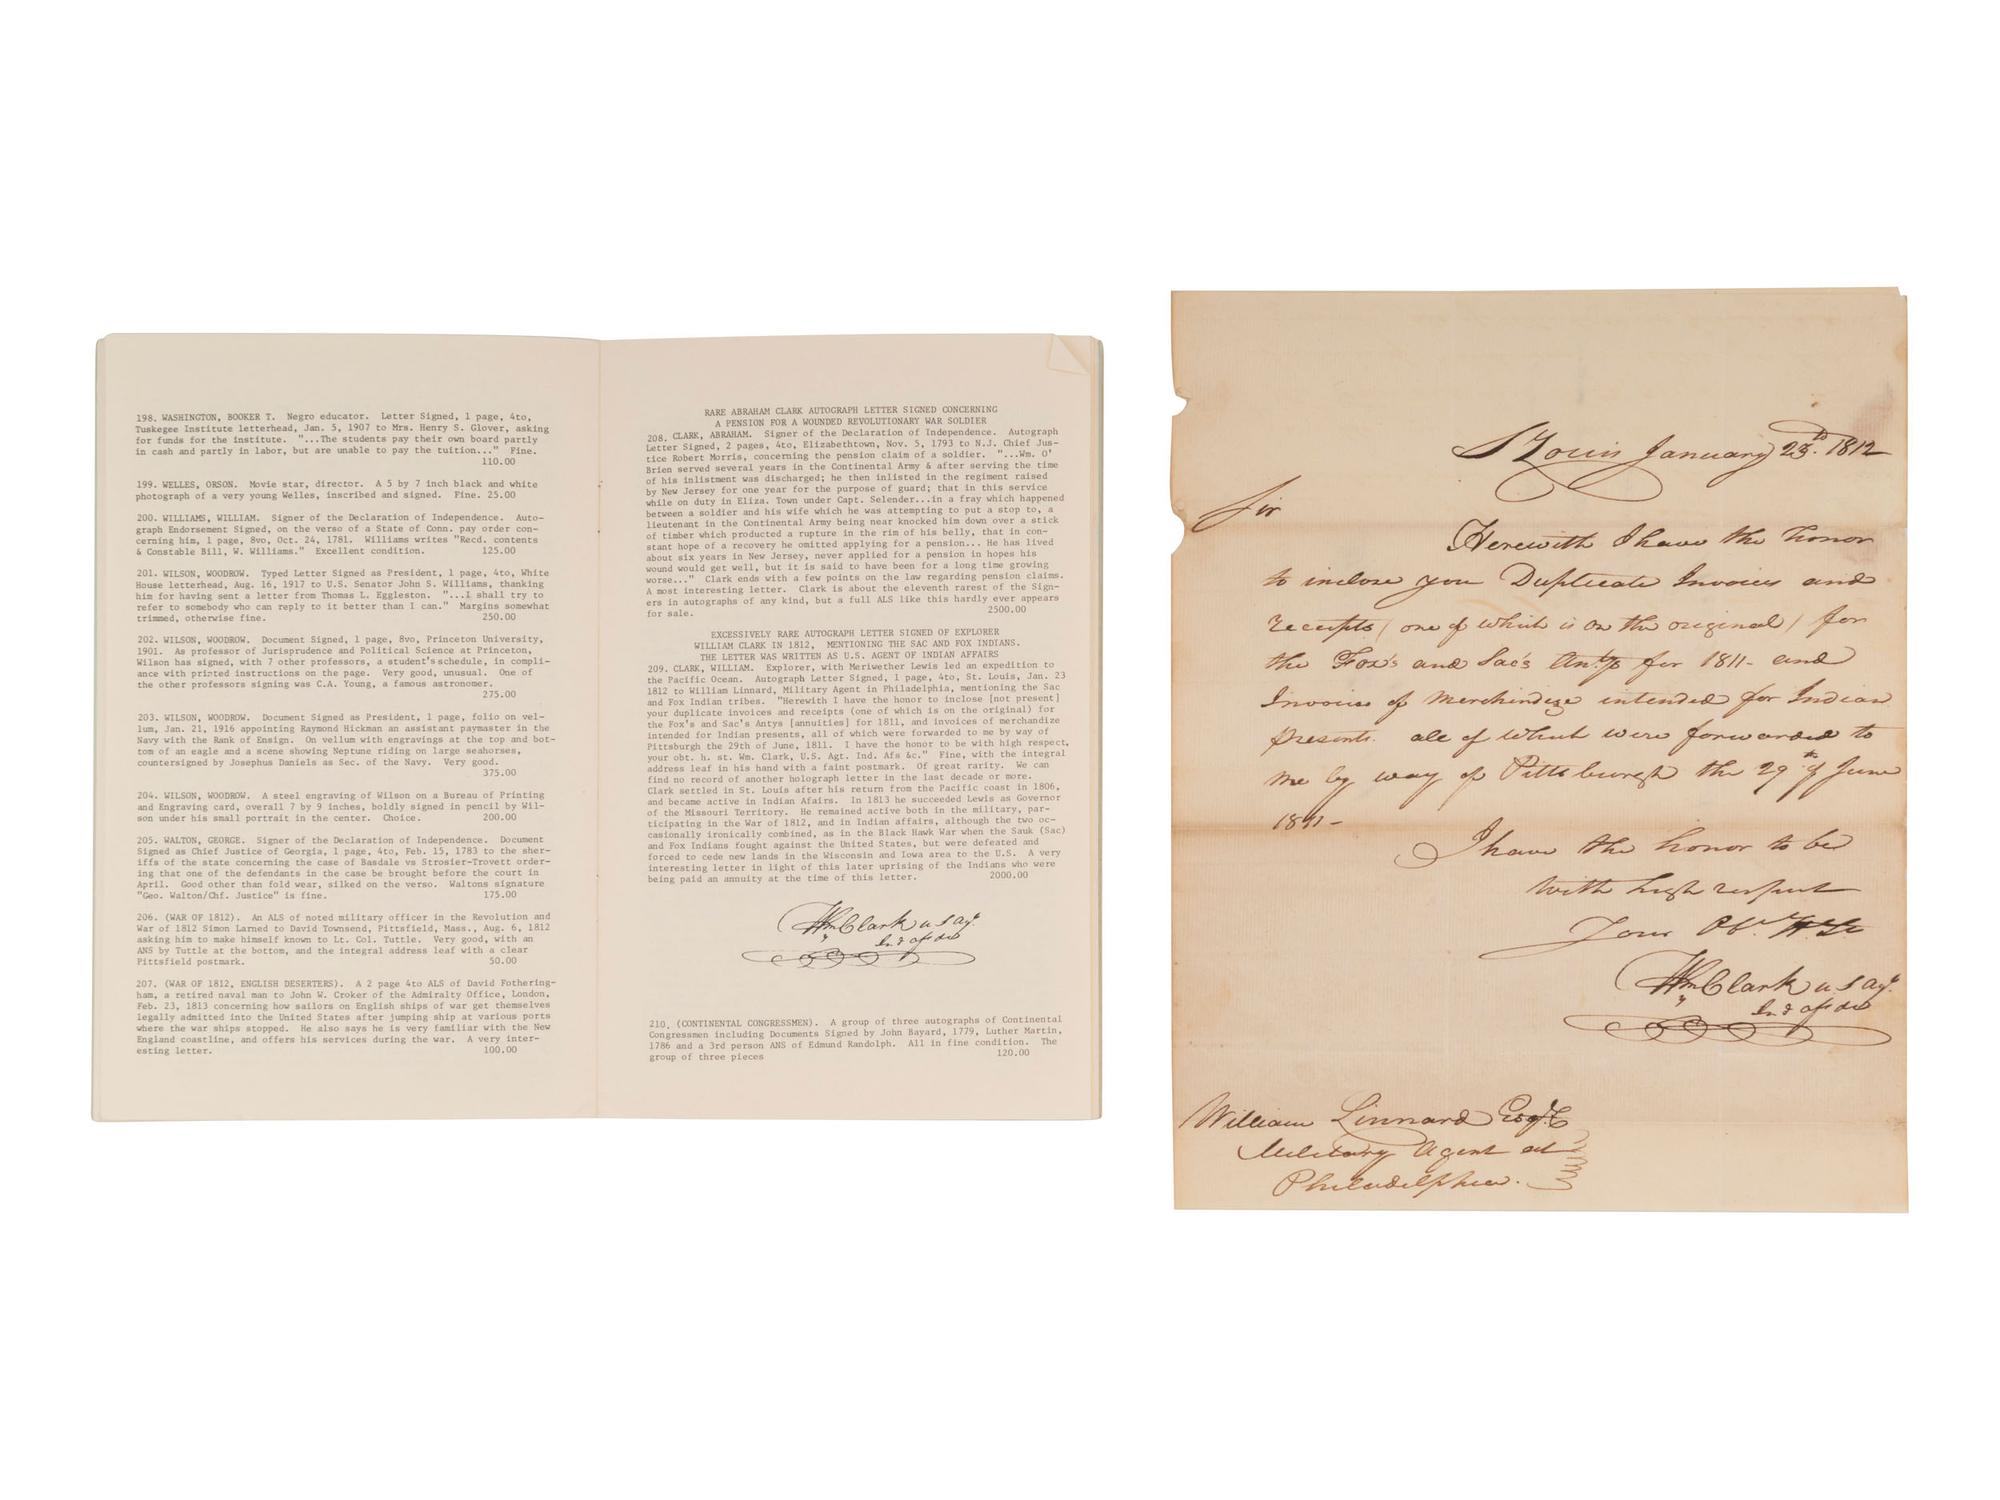 198. WASHINGTON, BOOKER T. Negro educator. Letter Signed, 1 page, 4to,
Tuskegee Institute letterhead, Jan. 5, 1907 to Mrs. Henry S. Glover, asking
for funds for the institute. "...The students pay their own board partly
in cash and partly in labor, but are unable to pay the tuition..." Fine.
110.00
199. WELLES, ORSON. Movie star, director. A 5 by 7 inch black and white
photograph of a very young Welles, inscribed and signed. Fine. 25.00
200. WILLIAMS, WILLIAM. Signer of the Declaration of Independence. Auto-
graph Endorsement Signed, on the verso of a State of Conn. pay order con-
cerning him, 1 page, 8vo, Oct. 24, 1781. Williams writes "Recd. contents
& Constable Bill, W. Williams." Excellent condition. 125.00
201. WILSON, WOODROW. Typed Letter Signed as President, 1 page, 4to, White
House letterhead, Aug. 16, 1917 to U.S. Senator John S. Williams, thanking
him for having sent a letter from Thomas L. Eggleston. "...I shall try to
refer to somebody who can reply to it better than I can." Margins somewhat
trimmed, otherwise fine. 250.00
202. WILSON, WOODROW. Document Signed, 1 page, 8vo, Princeton University,
1901. As professor of Jurisprudence and Political Science at Princeton,
Wilson has signed, with 7 other professors, a student's schedule, in compli-
ance with printed instructions on the page. Very good, unusual. One of
the other professors signing was C.A. Young, a famous astronomer.
275.00
203. WILSON, WOODROW. Document Signed as President, 1 page, folio on vel-
lum, Jan. 21, 1916 appointing Raymond Hickman an assistant paymaster in the
Navy with the Rank of Ensign. On vellum with engravings at the top and bot-
tom of an eagle and a scene showing Neptune riding on large seahorses,
countersigned by Josephus Daniels as Sec. of the Navy. Very good.
375.00
204. WILSON, WOODROW. A steel engraving of Wilson on a Bureau of Printing
and Engraving card, overall 7 by 9 inches, boldly signed in pencil by Wil-
son under his small portrait in the center. Choice. 200.00
205. WALTON, GEORGE. Signer of the Declaration of Independence. Document
Signed as Chief Justice of Georgia, 1 page, 4to, Feb. 15, 1783 to the sher-
iffs of the state concerning the case of Basdale vs Strosier-Trovett order-
ing that one of the defendants in the case be brought before the court in
April. Good other than fold wear, silked on the verso. Waltons signature
"Geo. Walton/Chf. Justice" is fine. 175.00
206. (WAR OF 1812). An ALS of noted military officer in the Revolution and
War of 1812 Simon Larned to David Townsend, Pittsfield, Mass., Aug. 6, 1812
asking him to make himself known to Lt. Col. Tuttle. Very good, with an
ANS by Tuttle at the bottom, and the integral address leaf with a clear
Pittsfield postmark. 50.00
207. (WAR OF 1812, ENGLISH DESERTERS). A 2 page 4to ALS of David Fothering-
ham, a retired naval man to John W. Croker of the Admiralty Office, London,
Feb. 23, 1813 concerning how sailors on English ships of war get themselves
legally admitted into the United States after jumping ship at various ports
where the war ships stopped. He also says he is very familiar with the New
England coastline, and offers his services during the war. A very inter-
esting letter. 100.00
RARE ABRAHAM CLARK AUTOGRAPH LETTER SIGNED CONCERNING
A PENSION FOR A WOUNDED REVOLUTIONARY WAR SOLDIER
208. CLARK, ABRAHAM. Signer of the Declaration of Independence. Autograph
Letter Signed, 2 pages, 4to, Elizabethtown, Nov. 5, 1793 to N.J. Chief Jus-
tice Robert Morris, concerning the pension claim of a soldier. "...Wm. O'
Brien served several years in the Continental Army & after serving the time
of his inlistment was discharged; he then inlisted in the regiment raised
by New Jersey for one year for the purpose of guard; that in this service
while on duty in Eliza. Town under Capt. Selender...in a fray which happened
between a soldier and his wife which he was attempting to put a stop to, a
lieutenant in the Continental Army being near knocked him down over a stick
of timber which producted a rupture in the rim of his belly, that in con-
stant hope of a recovery he omitted applying for a pension... He has lived
about six years in New Jersey, never applied for a pension in hopes his
wound would get well, but it is said to have been for a long time growing
worse..." Clark ends with a few points on the law regarding pension claims.
A most interesting letter. Clark is about the eleventh rarest of the Sign-
ers in autographs of any kind, but a full ALS like this hardly ever appears
for sale. 2500.00
EXCESSIVELY RARE AUTOGRAPH LETTER SIGNED OF EXPLORER
WILLIAM CLARK IN 1812, MENTIONING THE SAC AND FOX INDIANS.
THE LETTER WAS WRITTEN AS U.S. AGENT OF INDIAN AFFAIRS
209. CLARK, WILLIAM. Explorer, with Meriwether Lewis led an expedition to
the Pacific Ocean. Autograph Letter Signed, 1 page, 4to, St. Louis, Jan. 23
1812 to William Linnard, Military Agent in Philadelphia, mentioning the Sac
and Fox Indian tribes. "Herewith I have the honor to inclose [not present]
your duplicate invoices and receipts (one of which is on the original) for
the Fox's and Sac's Antys [annuities] for 1811, and invoices of merchandize
intended for Indian presents, all of which were forwarded to me by way of
Pittsburgh the 29th of June, 1811. I have the honor to be with high respect,
your obt. h. st. Wm. Clark, U.S. Agt. Ind. Afs &c." Fine, with the integral
address leaf in his hand with a faint postmark. Of great rarity. We can
find no record of another holograph letter in the last decade or more.
Clark settled in St. Louis after his return from the Pacific coast in 1806,
and became active in Indian Afairs. In 1813 he succeeded Lewis as Governor
of the Missouri Territory. He remained active both in the military, par-
ticipating in the War of 1812, and in Indian affairs, although the two oc-
casionally ironically combined, as in the Black Hawk War when the Sauk (Sac)
and Fox Indians fought against the United States, but were defeated and
forced to cede new lands in the Wisconsin and Iowa area to the U.S. A very
interesting letter in light of this later uprising of the Indians who were
being paid an annuity at the time of this letter. 2000.00
Wm Clark U S Agt.
Ind af do
210. (CONTINENTAL CONGRESSMEN). A group of three autographs of Continental
Congressmen including Documents Signed by John Bayard, 1779, Luther Martin,
1786 and a 3rd person ANS of Edmund Randolph. All in fine condition. The
group of three pieces 120.00
St Louis January 23rd. 1812
Sir
Herewith I have the honor
to inclose you Duplicate Invoices and
receipts (one of which is on the original) for
the Fox's and Sac's Antys for 1811- and
Invoices of Merchindize intended for Indian
presents. all of which were forwarded to
me by way of Pittsburgh the 29th of June
1811-
I have the honor to be
with high respect
Your Obt. H. St
Wm Clark U S Agt.
Ind af do
William Linnard Esqr.
Military Agent at
Philadelphia.